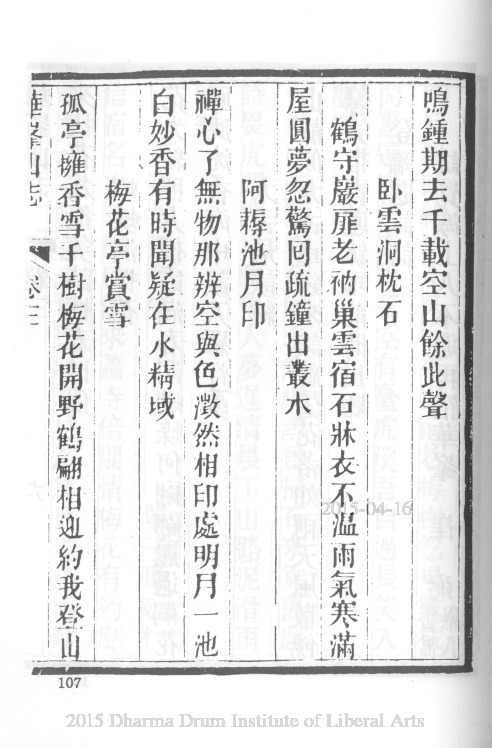 鳴鍾期去千載空山餘此聲
卧雲洞枕石
鶴守巖扉老衲巢雲宿石牀衣不温雨氣寒滿
屋圓夢忽驚囘疏鐘出叢木
阿耨池月印
禪心了無物那辨空與色澂然相印處明月一池
白妙香有時聞疑在水精域
梅花亭賞雪
孤亭擁香雪千樹梅花開野鶴翩相迎約我登山
華峯山志
卷三
107
2015-04-16
2015 Dharma Drum Institute of Liberal Arts